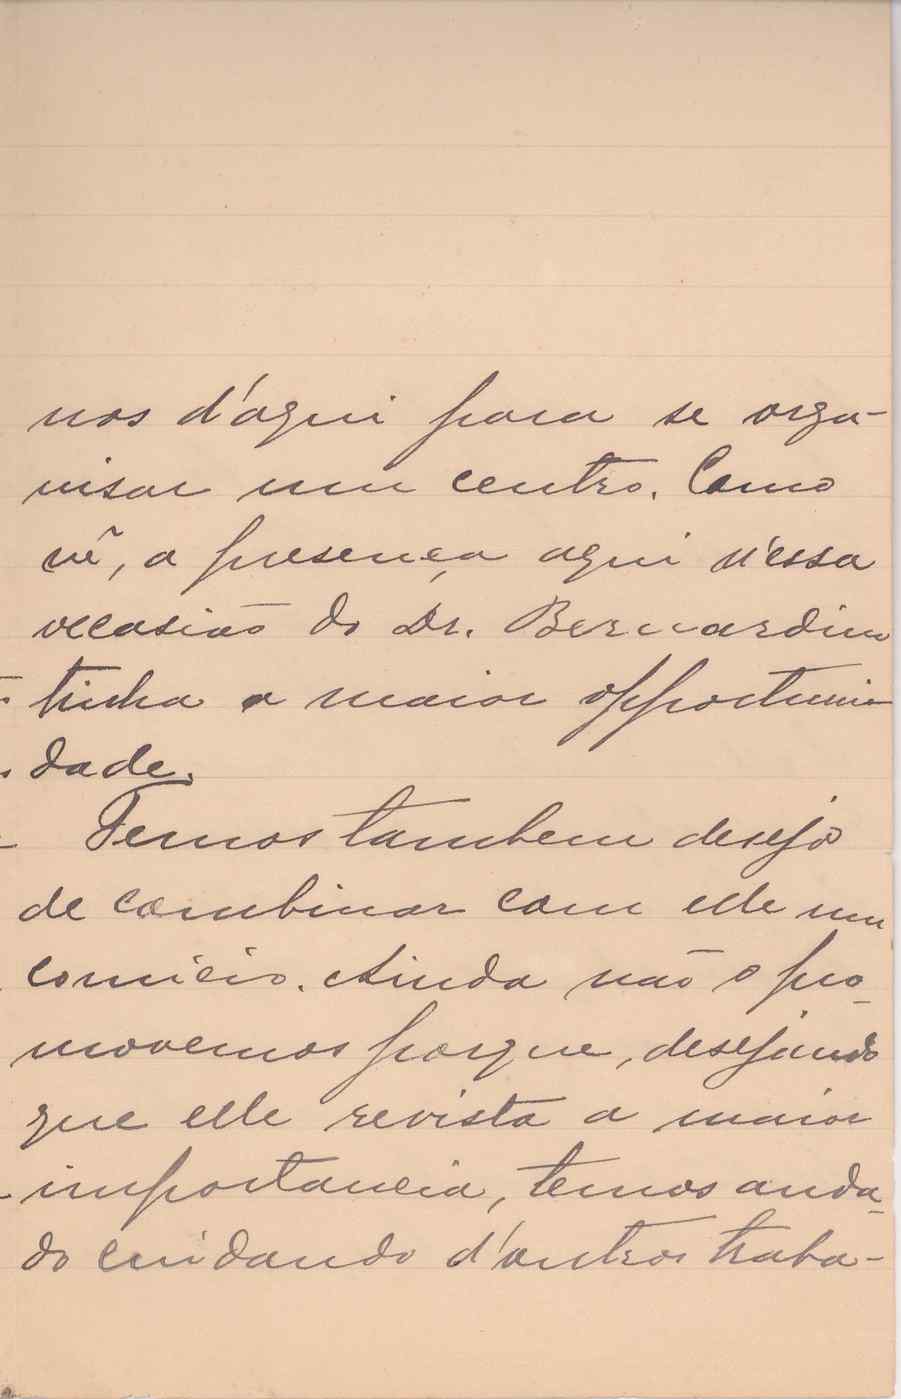 nos d'aqui para se orga-
nisar um centro. Como
vê, a presença aqui n'essa
occasião do Dr. Bernardino
tinha a maior opportuni-
dade.
Temos tambem desejo
de combinar com elle um
comicio. Ainda não o pro-
movemos porque, desejando
que elle revista a maior
importancia, temos anda-
do cuidando d'outros traba-